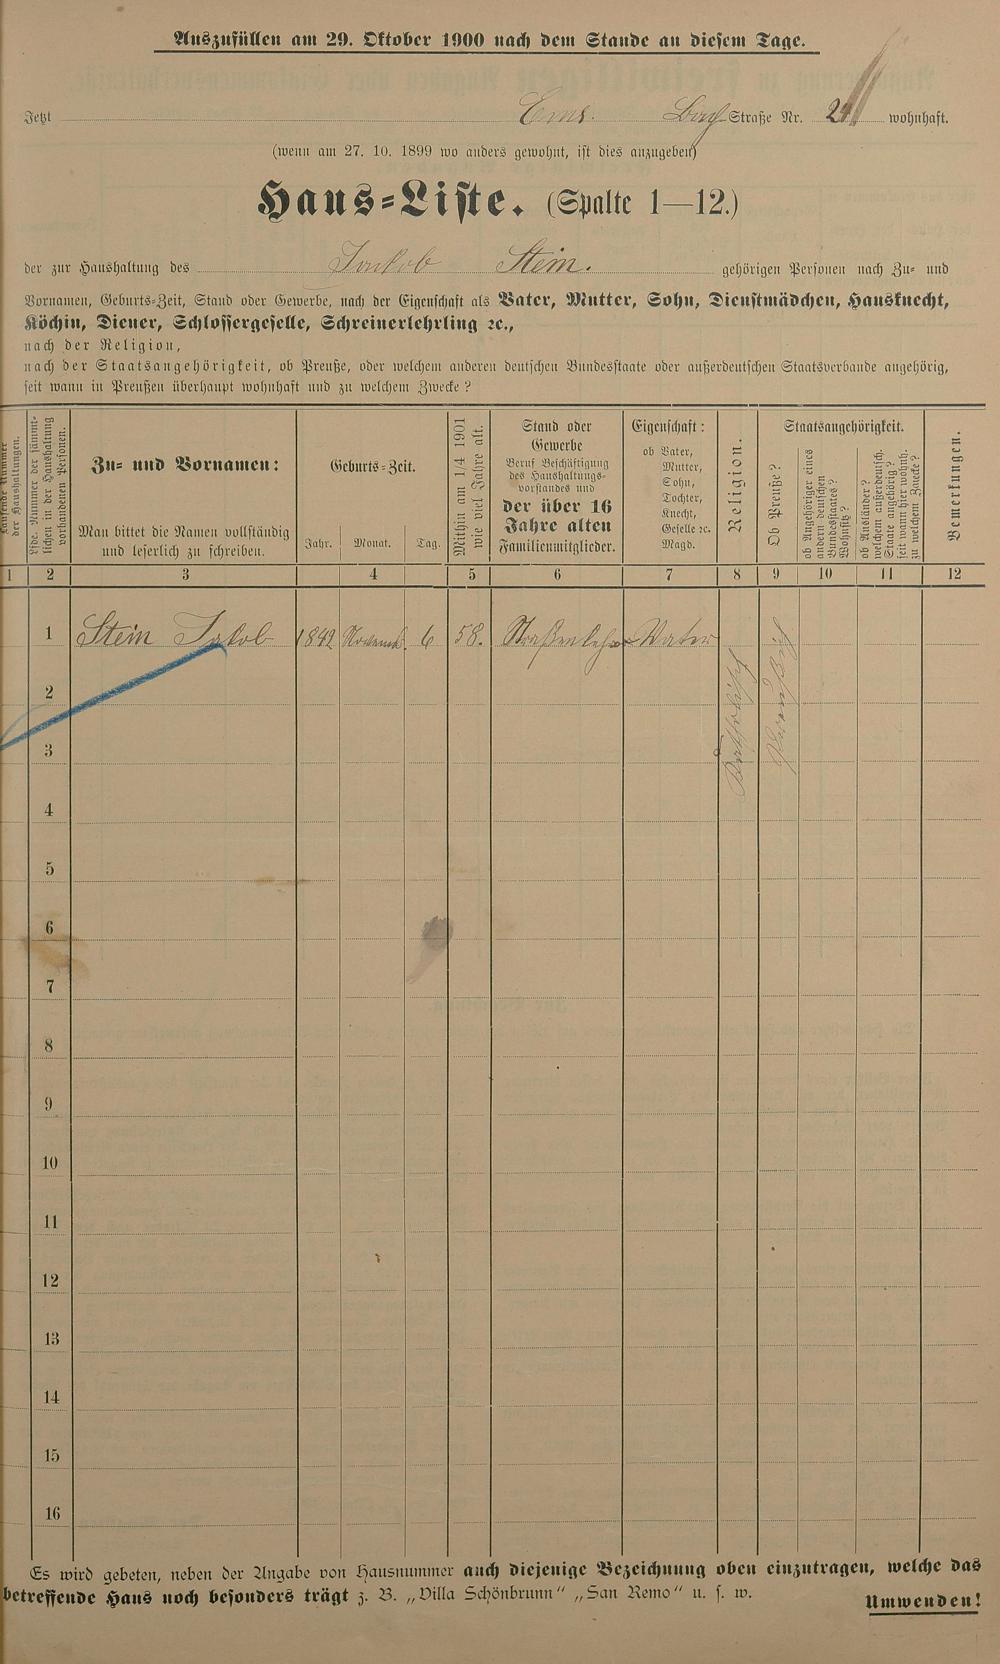 Auszufüllen am 29. Oktober 1900 nach dem Stande an diesem Tage.
Jetzt Ems. Bach Straße Nr. 24 wohnhaft.
(wenn am 27. 10. 1899 wo anders gewohnt, ist dies anzugeben)
Haus=Liste. (Spalte 1—12.)
der zur Haushaltung des Jakob Stein. gehörigen Personen nach Zu= und
Vornamen, Geburts=Zeit, Stand oder Gewerbe, nach der Eigenschaft als Vater, Mutter, Sohn, Dienstmädchen, Hausknecht,
Köchin, Diener, Schlossergeselle, Schreinerlehrling ꝛc.,
nach der Religion,
nach der Staatsangehörigkeit, ob Preuße, oder welchem anderen deutschen Bundesstaate oder außerdeutschen Staatsverbande angehörig,
seit wann in Preußen überhaupt wohnhaft und zu welchem Zwecke?
Laufende Nummer
der Haushaltungen.
Lfde. Nummer der sämmt-
lichen in der Haushaltung
vorhandenen Personen.
Zu= und Vornamen:
Man bittet die Namen vollständig
und leserlich zu schreiben.
Geburts=Zeit.
Jahr. Monat. Tag.
Mithin am 1/4 1901
wie viel Jahre alt.
Stand oder
Gewerbe
Beruf Beschäftigung
des Haushaltungs-
vorstandes und
der über 16
Jahre alten
Familienmitglieder.
Eigenschaft:
ob Vater,
Mutter,
Sohn,
Tochter,
Knecht,
Geselle ꝛc.
Magd.
Religion.
Staatsangehörigkeit.
Ob Preuße?
ob Angehöriger eines
andern deutschen
Bundesstaates?
Wohnsitz?
ob Ausländer?
welchem außerdeutsch.
Staate angehörig?
seit wann hier wohnh.
zu welchem Zwecke?
Bemerkungen.
1 2 3 4 5 6 7 8 9 10 11 12
1 Stein Jakob 1842 Novemb. 6 58. Vater
Katholisch
2
3
4
5
6
7
8
9
10
11
12
13
14
15
16
Es wird gebeten, neben der Angabe von Hausnummer auch diejenige Bezeichnung oben einzutragen, welche das
betreffende Haus noch besonders trägt z. B. „Villa Schönbrunn“ „San Remo“ u. s. w.
Umwenden!